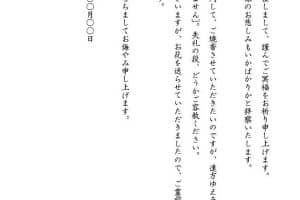 接しまして、謹んでご冥福をお祈り申し上げます。
のお悲しみもいかばかりかと拝察いたします。
して、ご焼香させていただきたいのですが、遠方ゆえ
ません)。失礼の段、どうかご容赦ください。
いますが、お花を送らせていただきましたので、ご霊
。
ちましてお悔やみ申し上げます。
〇月〇〇日